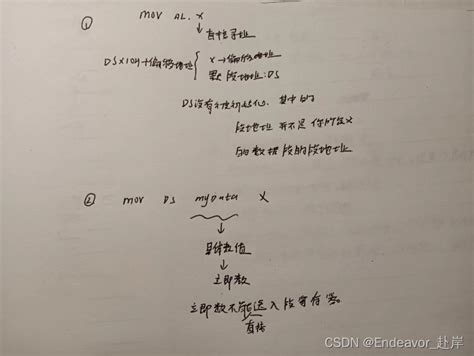 ① mov AL. X
直接寻址
DS×10H+偏移地址 { X→偏移地址
默 段地址:DS
DS没有 初始化. 其中的
段地址 并不是 你所定义
的数据段的段地址
② mov DS mydata X
具体数值
立即数
立即数不能送入段寄存器。
直接
CSDN @Endeavor_赴岸